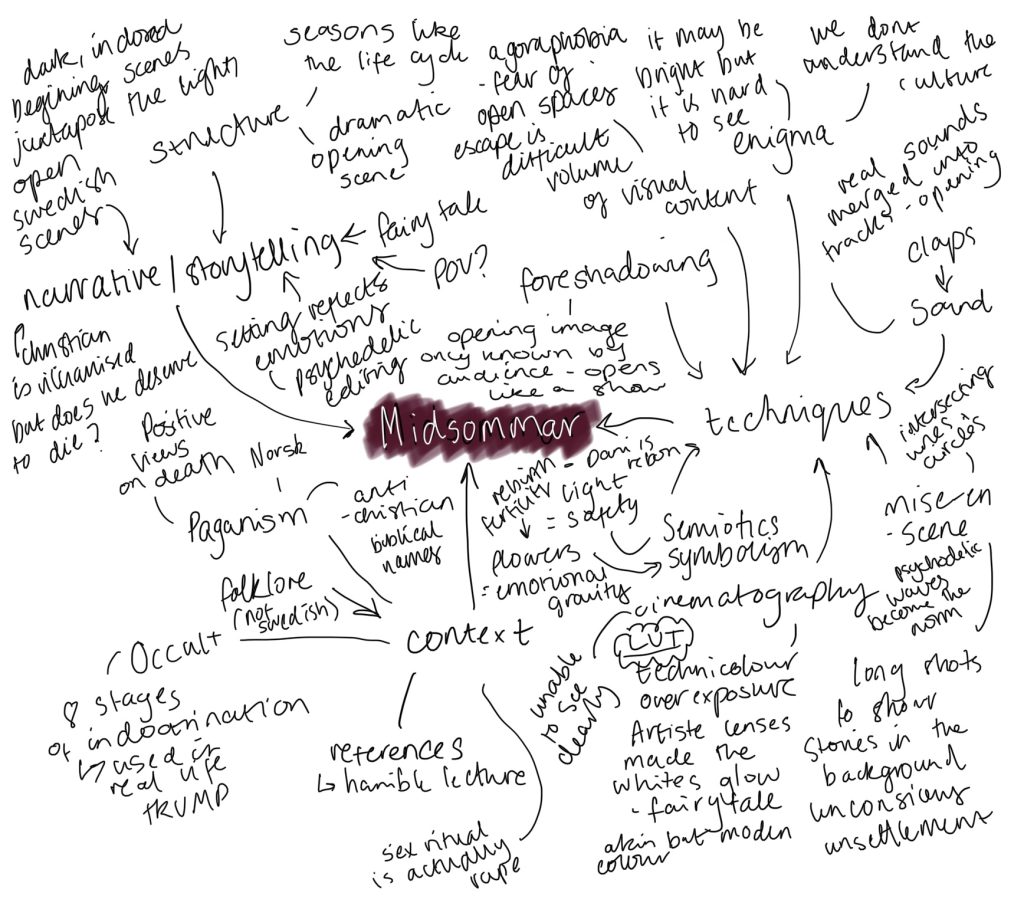 dark, indored
begining scenes
juxtapose the light,
open
swedish
scenes
structure
seasons like
the life cycle
dramatic
opening
scene
agoraphobia
- fear of
open spaces
escape is
difficult
it may be
bright but
it is hard
to see
we dont
understand the
culture
enigma
volume
of visual
content
real sounds
merged into
tracks - opening
claps
sound
narrative / storytelling
fairy tale
POV?
setting reflects
emotions
psychedelic
editing
foreshadowing
opening image
only known by
audience - opens
like a show
christian
is villianised
but does he deserve
to die?
Midsommar
techniques
intersecting
lines
circles
mise-en
- scene
psychedelic
waves
become the
norm
Positive
views
on death
Norsk
Paganism
anti
- christian
biblical
names
rebirth = Dani is
reborn
fertility
light
= safety
flowers
= emotional
gravity
Semiotics
symbolism
folklore
(not
swedish)
Occult
8 stages
of indoctrination
↳ used in
real life
TRUMP
context
references
↳ horrible lecture
sex ritual
is actually
rape
cinematography
LUT
unable
to see
clearly
technicolour
overexposure
Artiste lenses
made the
whites glow
- fairytale
akin but modern
colour
long shots
to show
stories in the
background
unconsious
unsettlement